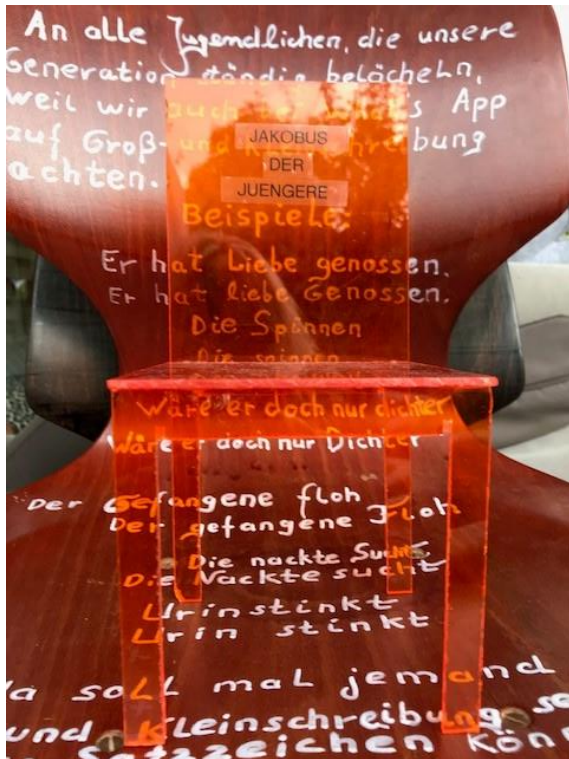 An alle Jugendlichen, die unsere
Generation ständig belächeln,
weil wir auch bei s App
auf Groß- und schreibung
achten.
JAKOBUS
DER
JUENGERE
Beispiele:
Er hat Liebe genossen.
Er hat liebe Genossen.
Die Spinnen
Die spinnen
Wäre er doch nur dichter
Wäre er doch nur Dichter
Der Gefangene floh
Der gefangene Floh
Die nackte Sucht
Die Nackte sucht
Urinstinkt
Urin stinkt
Da soll mal jemand
und Kleinschreibung se
Satzzeichen könn